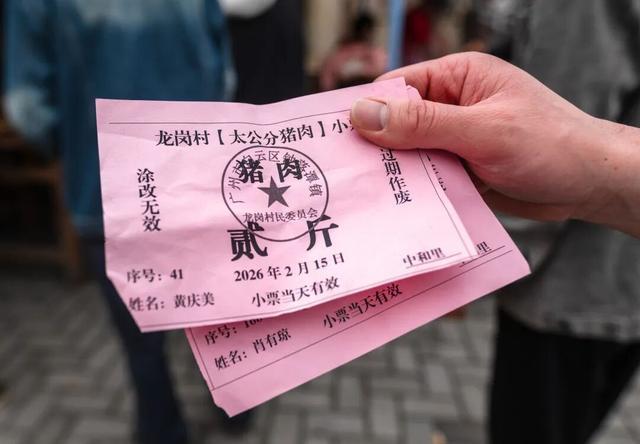 龙岗村【太公分猪肉】小
涂改无效
猪肉
过期作废
龙岗村民委员会
贰斤
2026年2月15日
中和里
序号：41
姓名：黄庆美
小票当天有效
中和里
序号：
小票当天有效
姓名：肖有琼